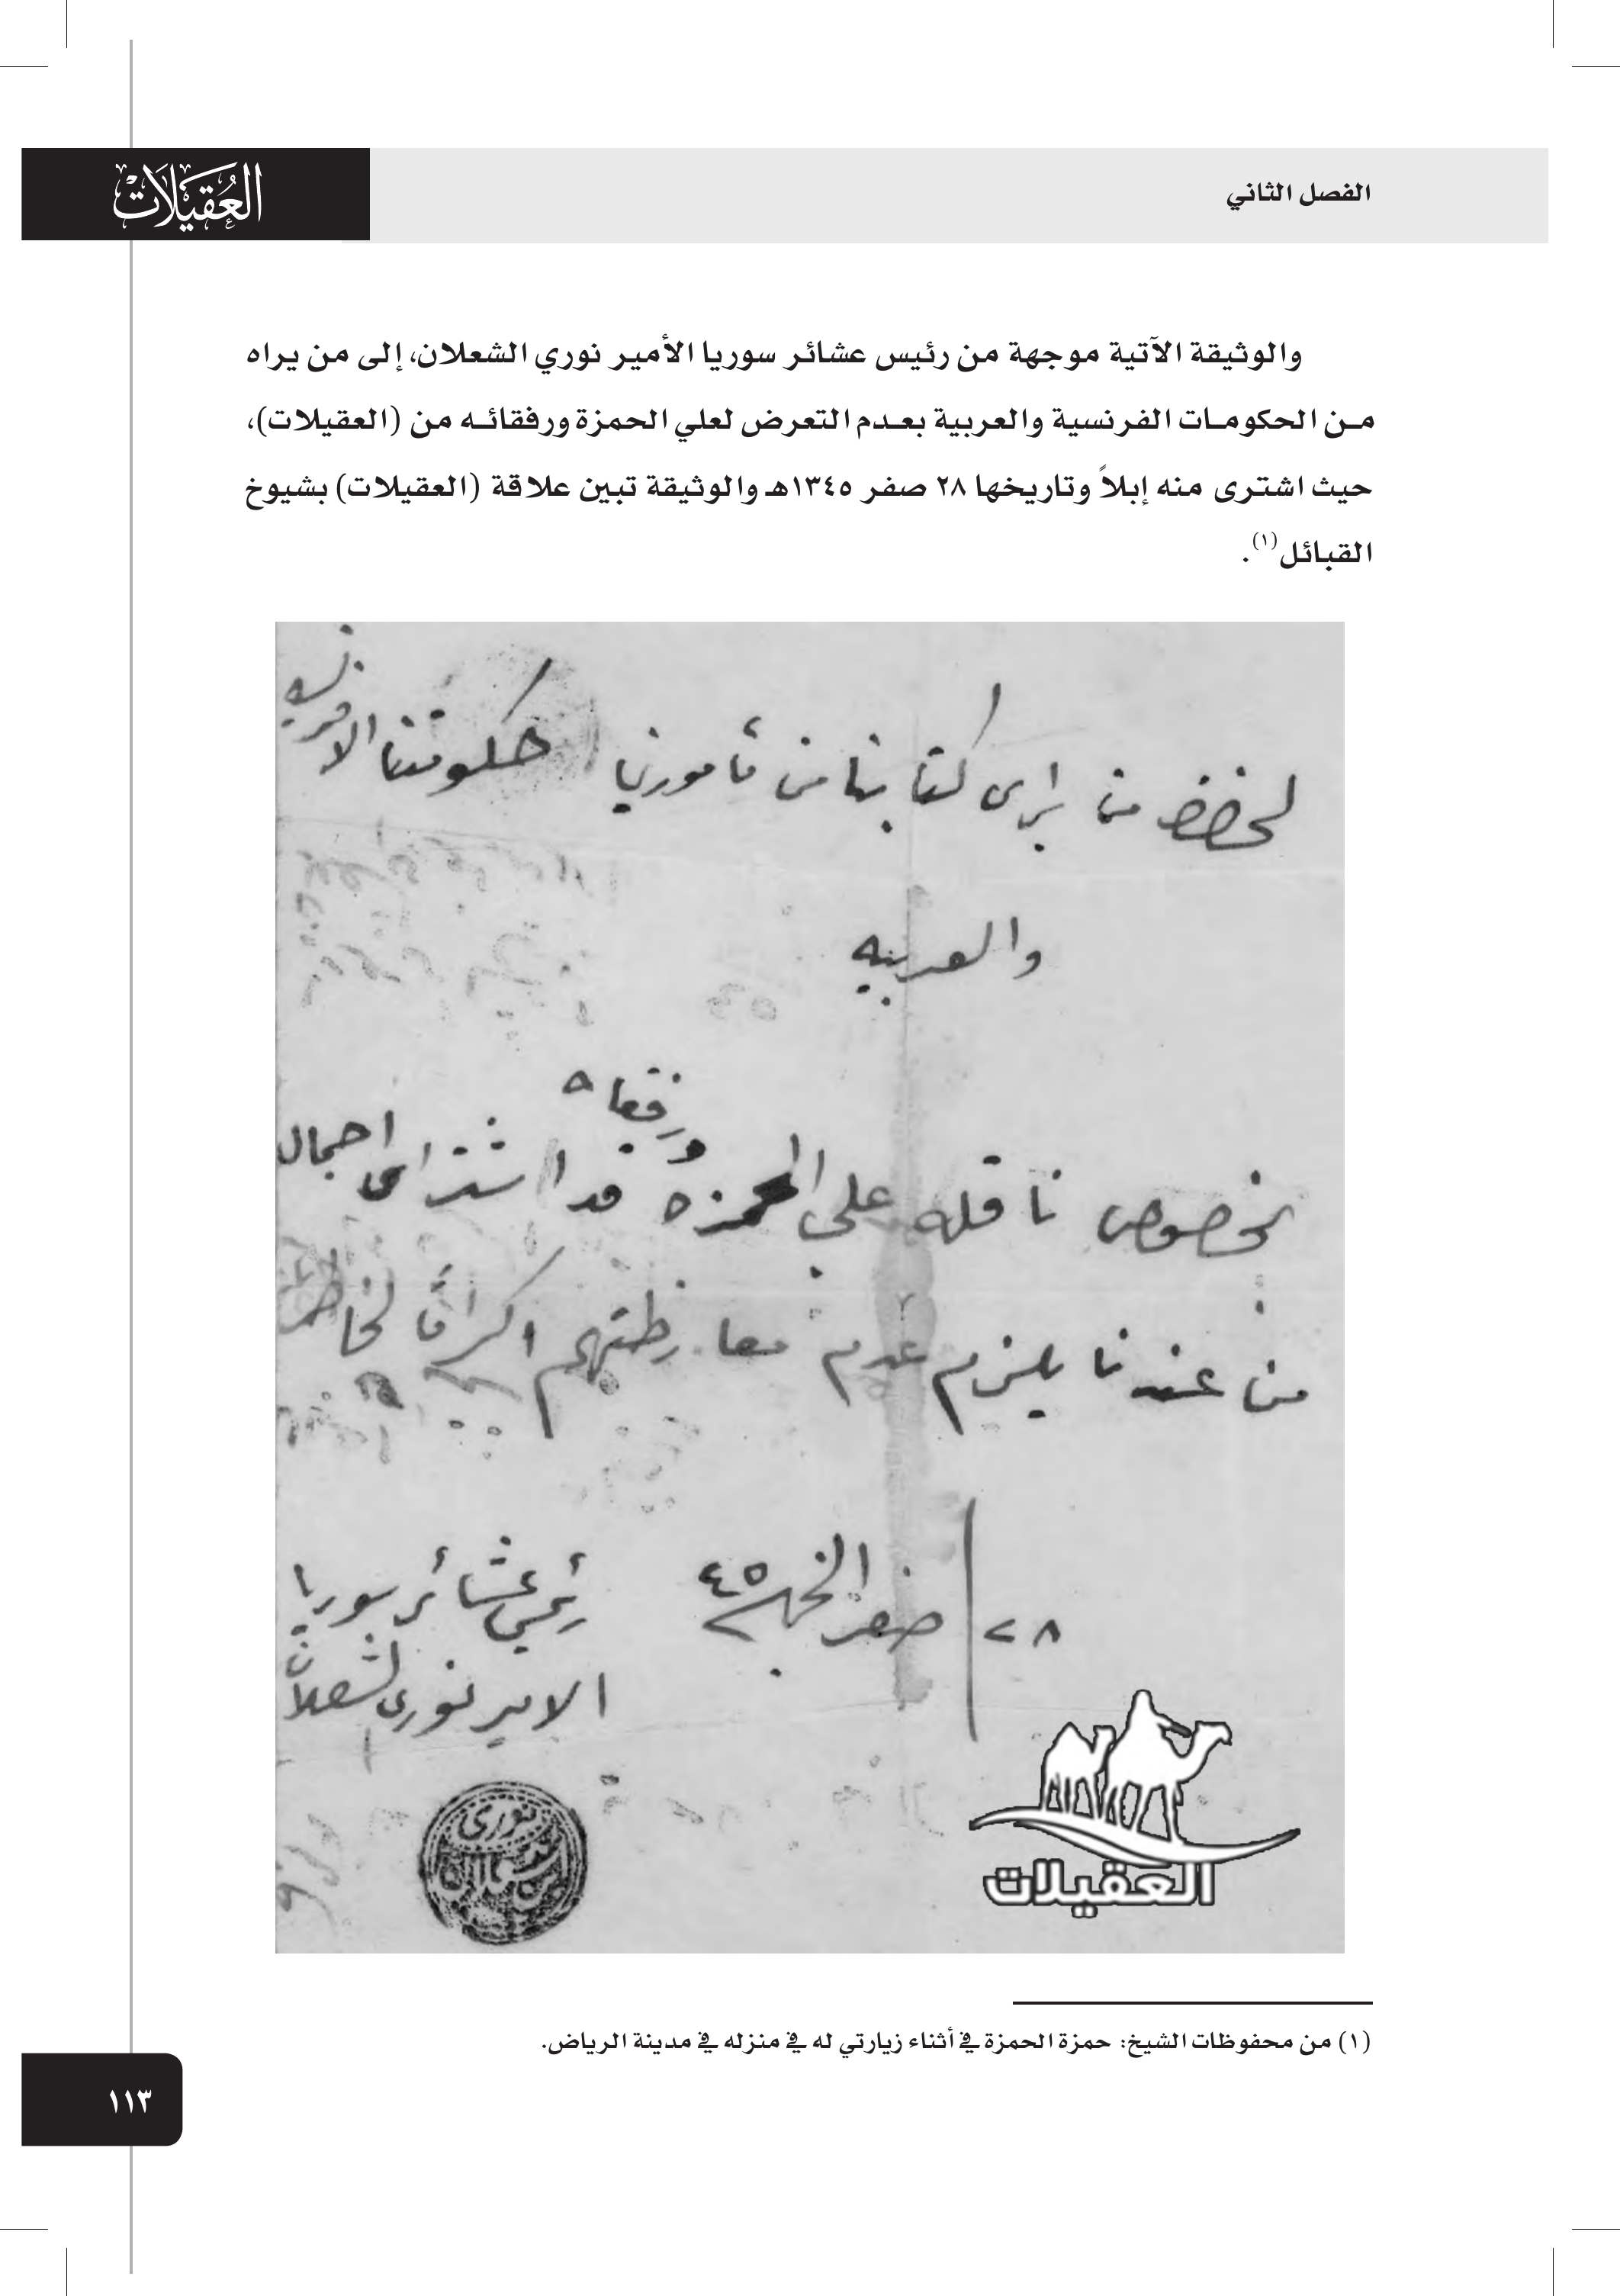 الفصل الثاني
العُقَيلَات
والوثيقة الآتية موجهة من رئيس عشائر سوريا الأمير نوري الشعلان، إلى من يراه
من الحكومات الفرنسية والعربية بعدم التعرض لعلي الحمزة ورفقائه من (العقيلات)،
حيث اشترى منه إبلاً وتاريخها ٢٨ صفر ١٣٤٥هـ والوثيقة تبين علاقة (العقيلات) بشيوخ
القبائل(١).
من يراى كتابنا من مأمورين حكومتنا الافرنسيه
والعربيه
ورفقاه
بخصوص ناقله علي الحمزه قد اشتراى اجمال
من عندنا يلزم عدم معارظتهم اكراماً لخاطرنا
٢٨ صفر الخير ٤٥
رئيس عشائر سوريا
الامير نوري الشعلان
نوري
بن شعلان
العقيلات
(١) من محفوظات الشيخ: حمزة الحمزة في أثناء زيارتي له في منزله في مدينة الرياض.
١١٣